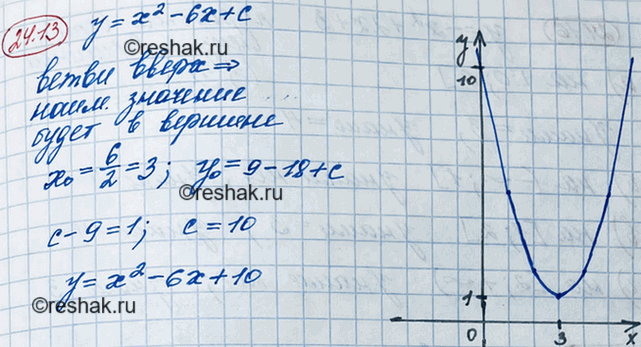 24.13
y = x² - 6x + c
©reshak.ru
ветви вверх ⇒
наим. значение
будет в вершине
x₀ = 6/2 = 3; y₀ = 9 - 18 + c
©reshak.ru
c - 9 = 1; c = 10
y = x² - 6x + 10
©reshak.ru
y
10
1
0
3
x